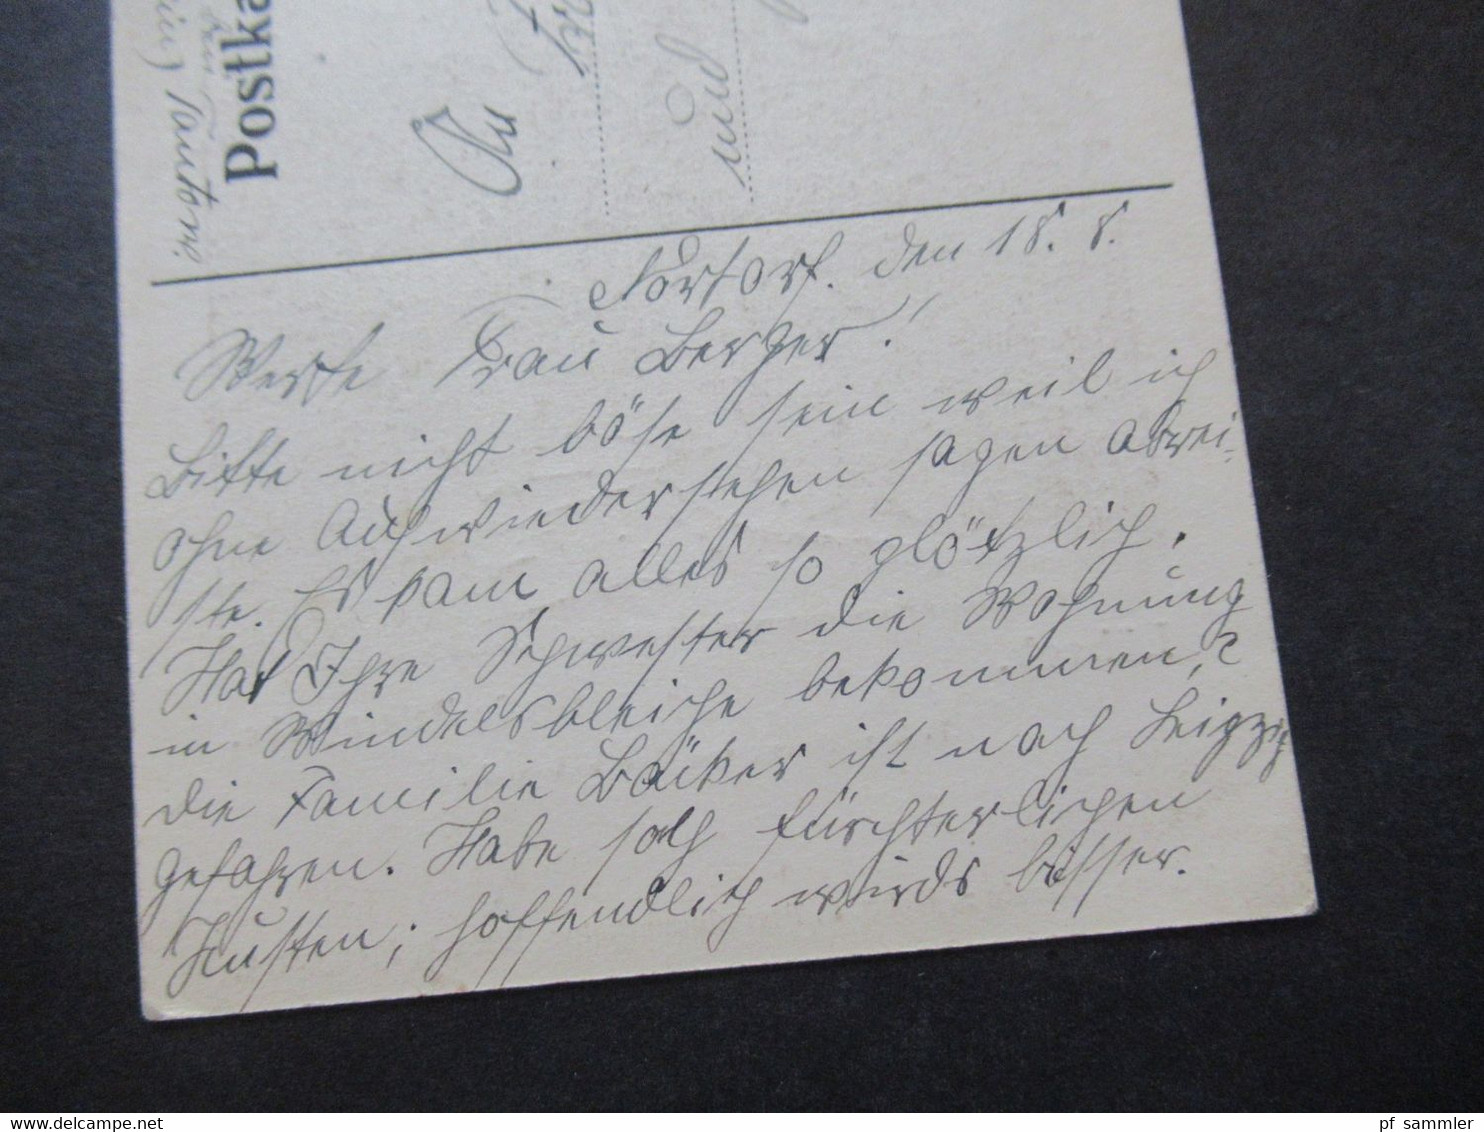 Postka
An
und
Nortorf. den 18. 8.
Werte Frau Berger!
Bitte nicht böse sein weil ich
ohne Aufwiedersehen sagen abrei-
ste. Es kam alles so plötzlich.
Hat Ihre Schwester die Wohnung
in Windelsbleiche bekommen?
die Familie Bäcker ist nach Leipzig
gefahren. Habe solch fürchterlichen
Husten; hoffendlich wirds besser.
pf sammler